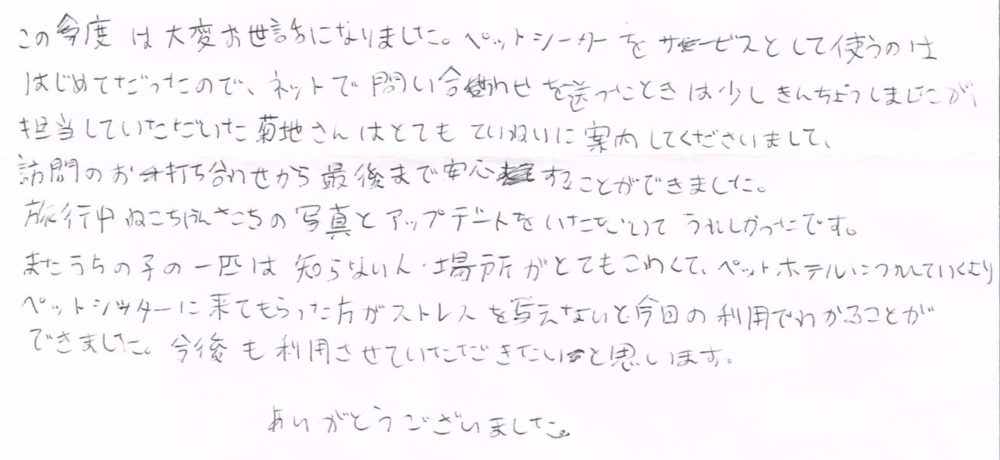 この今度は大変お世話になりました。ペットシーカーをサービスとして使うのは
はじめてだったので、ネットで問い合わせを送ったときは少しきんちょうしましたが
担当していただいた菊地さんはとてもていねいに案内してくださいまして、
訪問のお打ち合わせから最後まで安心することができました。
旅行中ねこちゃんたちの写真とアップデートをいただいてうれしかったです。
またうちの子の一匹は知らない人・場所がとてもこわくて、ペットホテルにつれていくより
ペットシッターに来てもらった方がストレスを与えないと今回の利用でわかることが
できました。今後も利用させていただきたいと思います。
ありがとうございました。